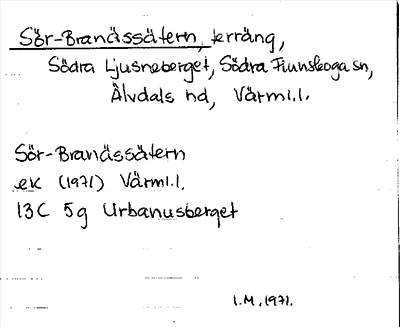 Sör-Branässätern, terräng,
Södra Ljusneberget, Södra Finnskoga sn,
Älvdals hd, Värml.l.
Sör-Branässätern
ek (1971) Värml.l.
13C 5g Urbanusberget
I.M. 1971.